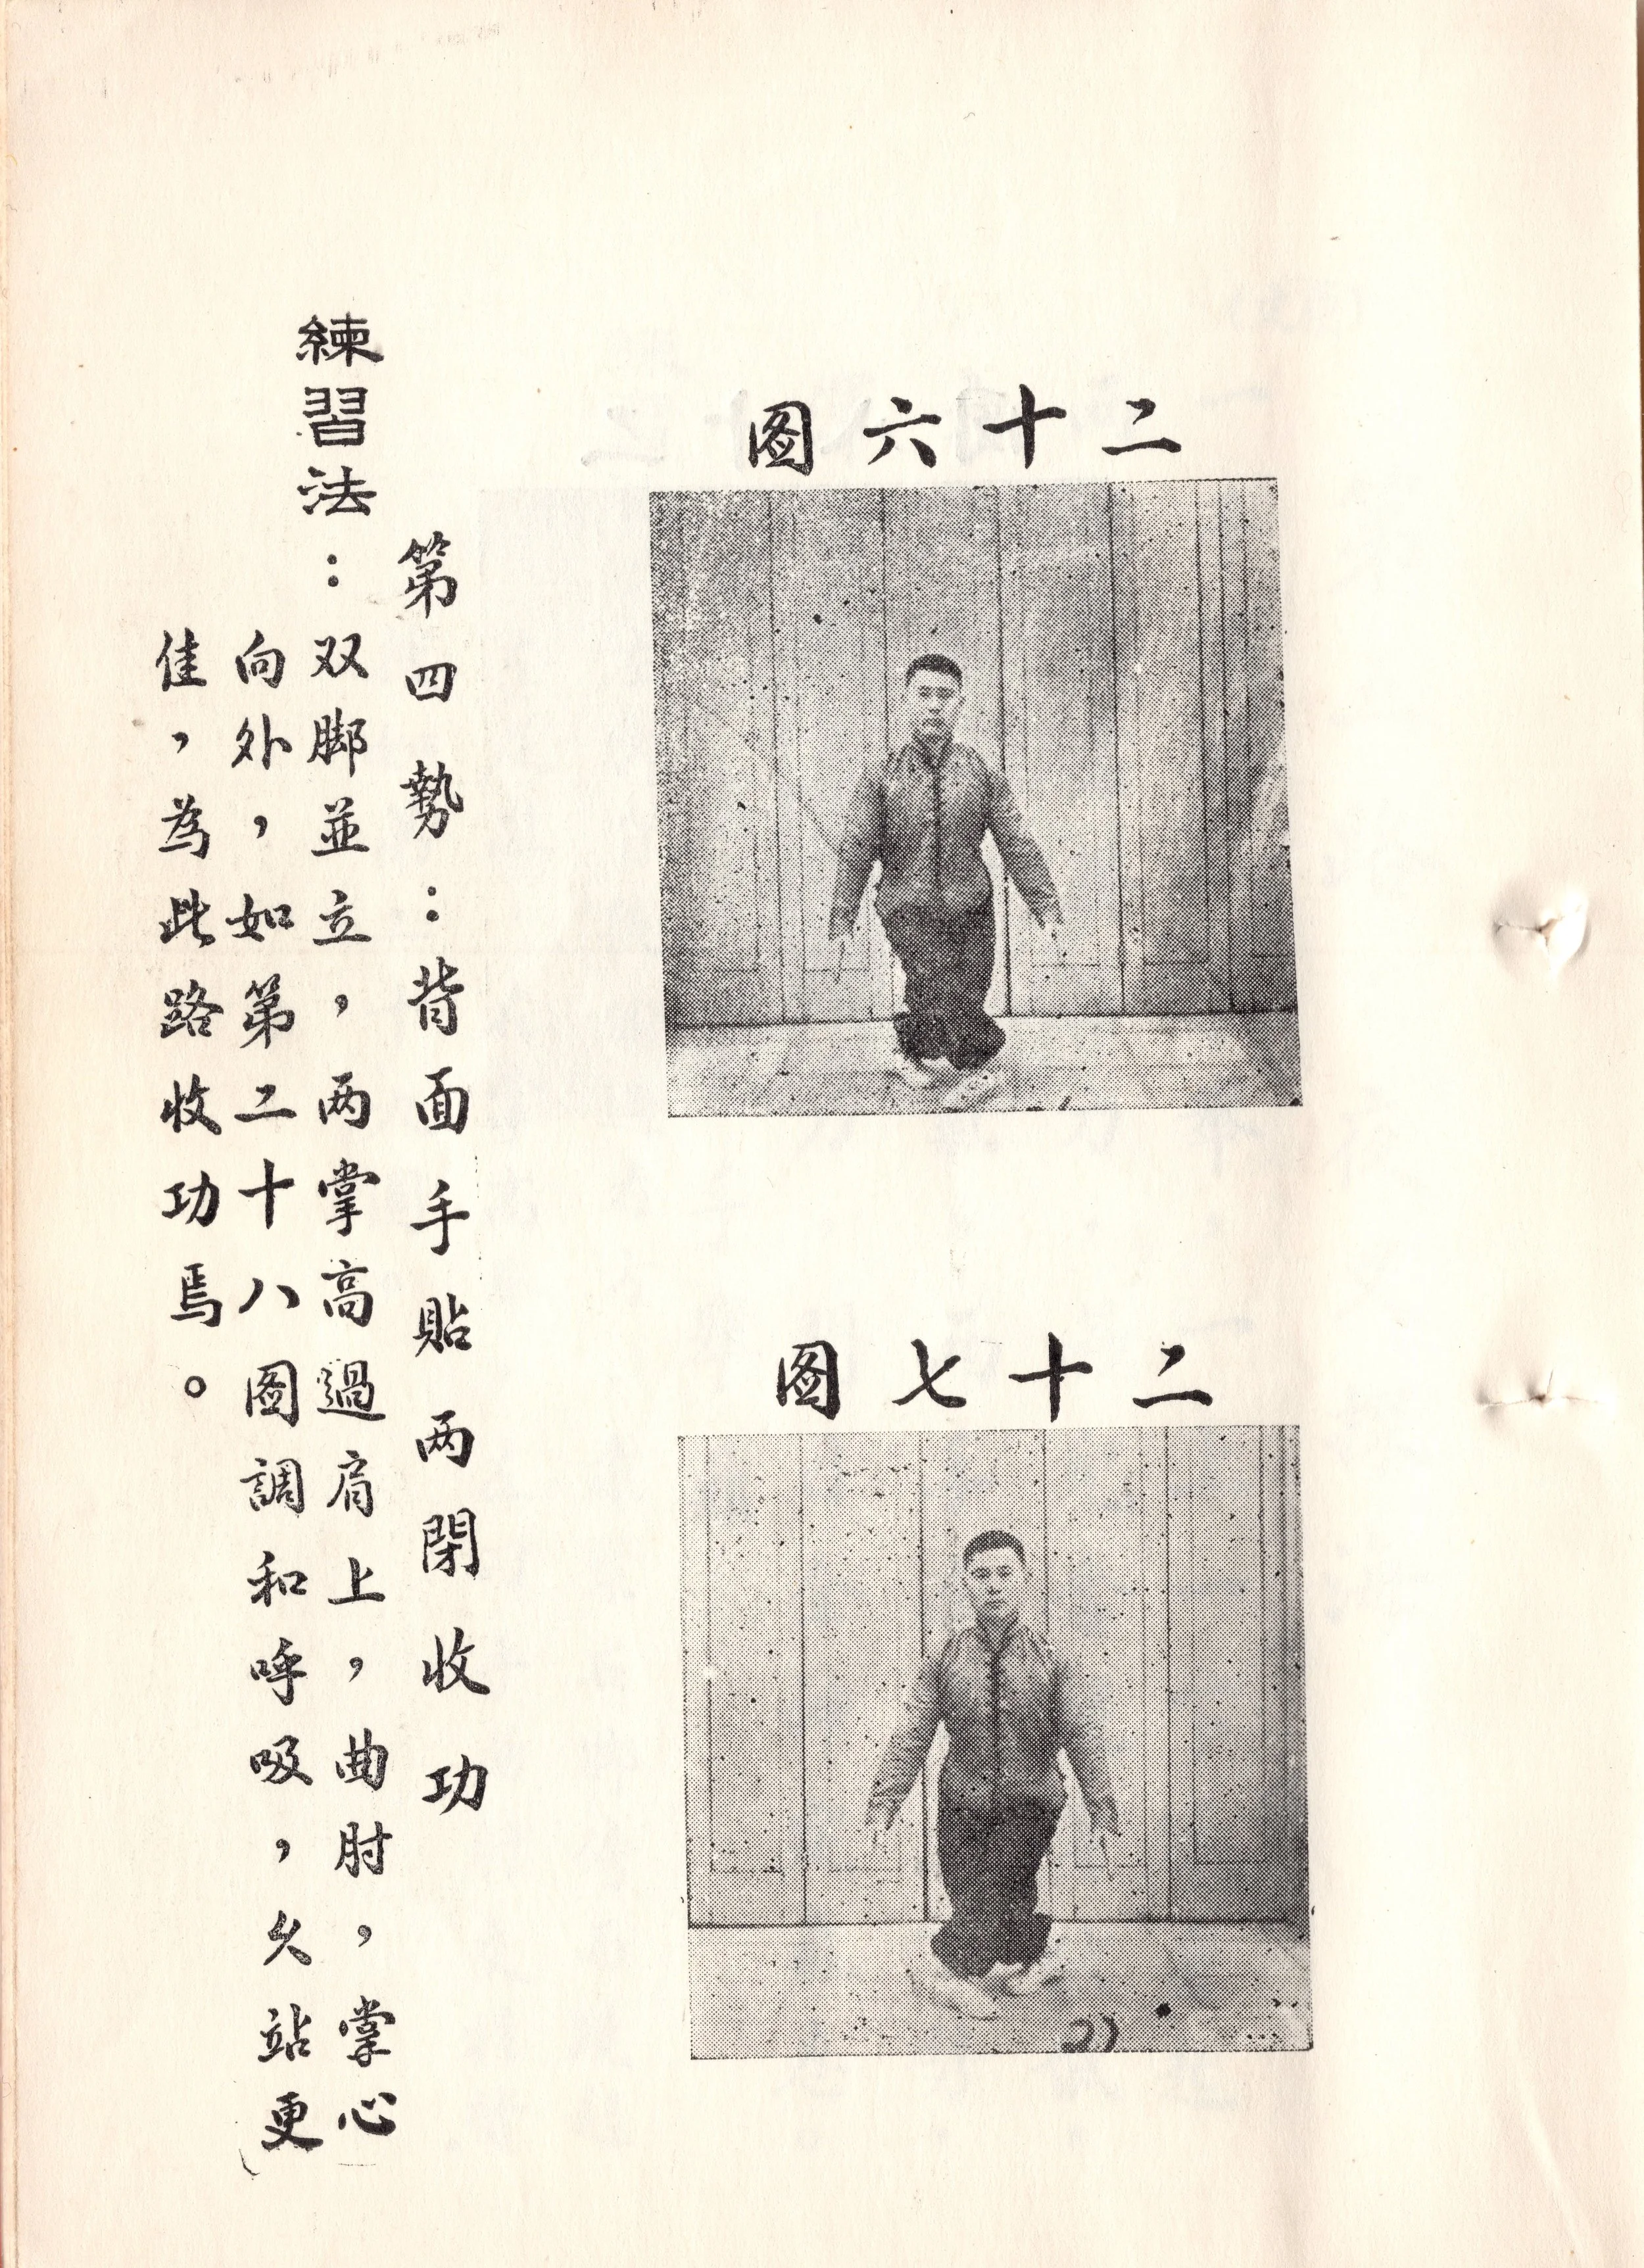 二十六图
二十七图
第四勢：背面手貼两閉收功
練習法：双脚並立，两掌高過肩上，曲肘，掌心
向外，如第二十八图調和呼吸，久站更
佳，為此路收功焉。